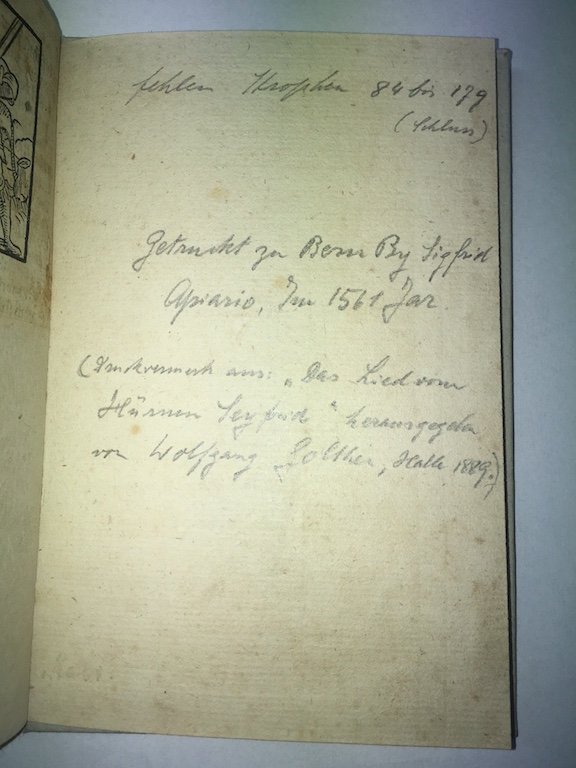 fehlen Strophen 84 bis 179
(Schluss)
Getruckt zu Bern By Sigfrid
Apiario, Im 1561 Jar.
(Druckvermerk aus: „Das Lied vom
Hürnen Seyfrid“ herausgegeben
von Wolfgang Golther, Halle 1889.)